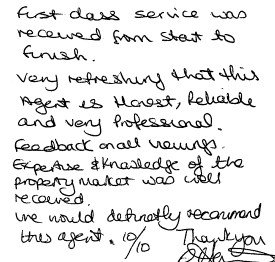 First class service was
received from start to
finish.
Very refreshing that this
Agent is Honest, Reliable
and very Professional.
Feedback on all viewings.
Expertise & Knowledge of the
property market was well
received.
We would definatly recommend
this agent. 10/10 Thank you